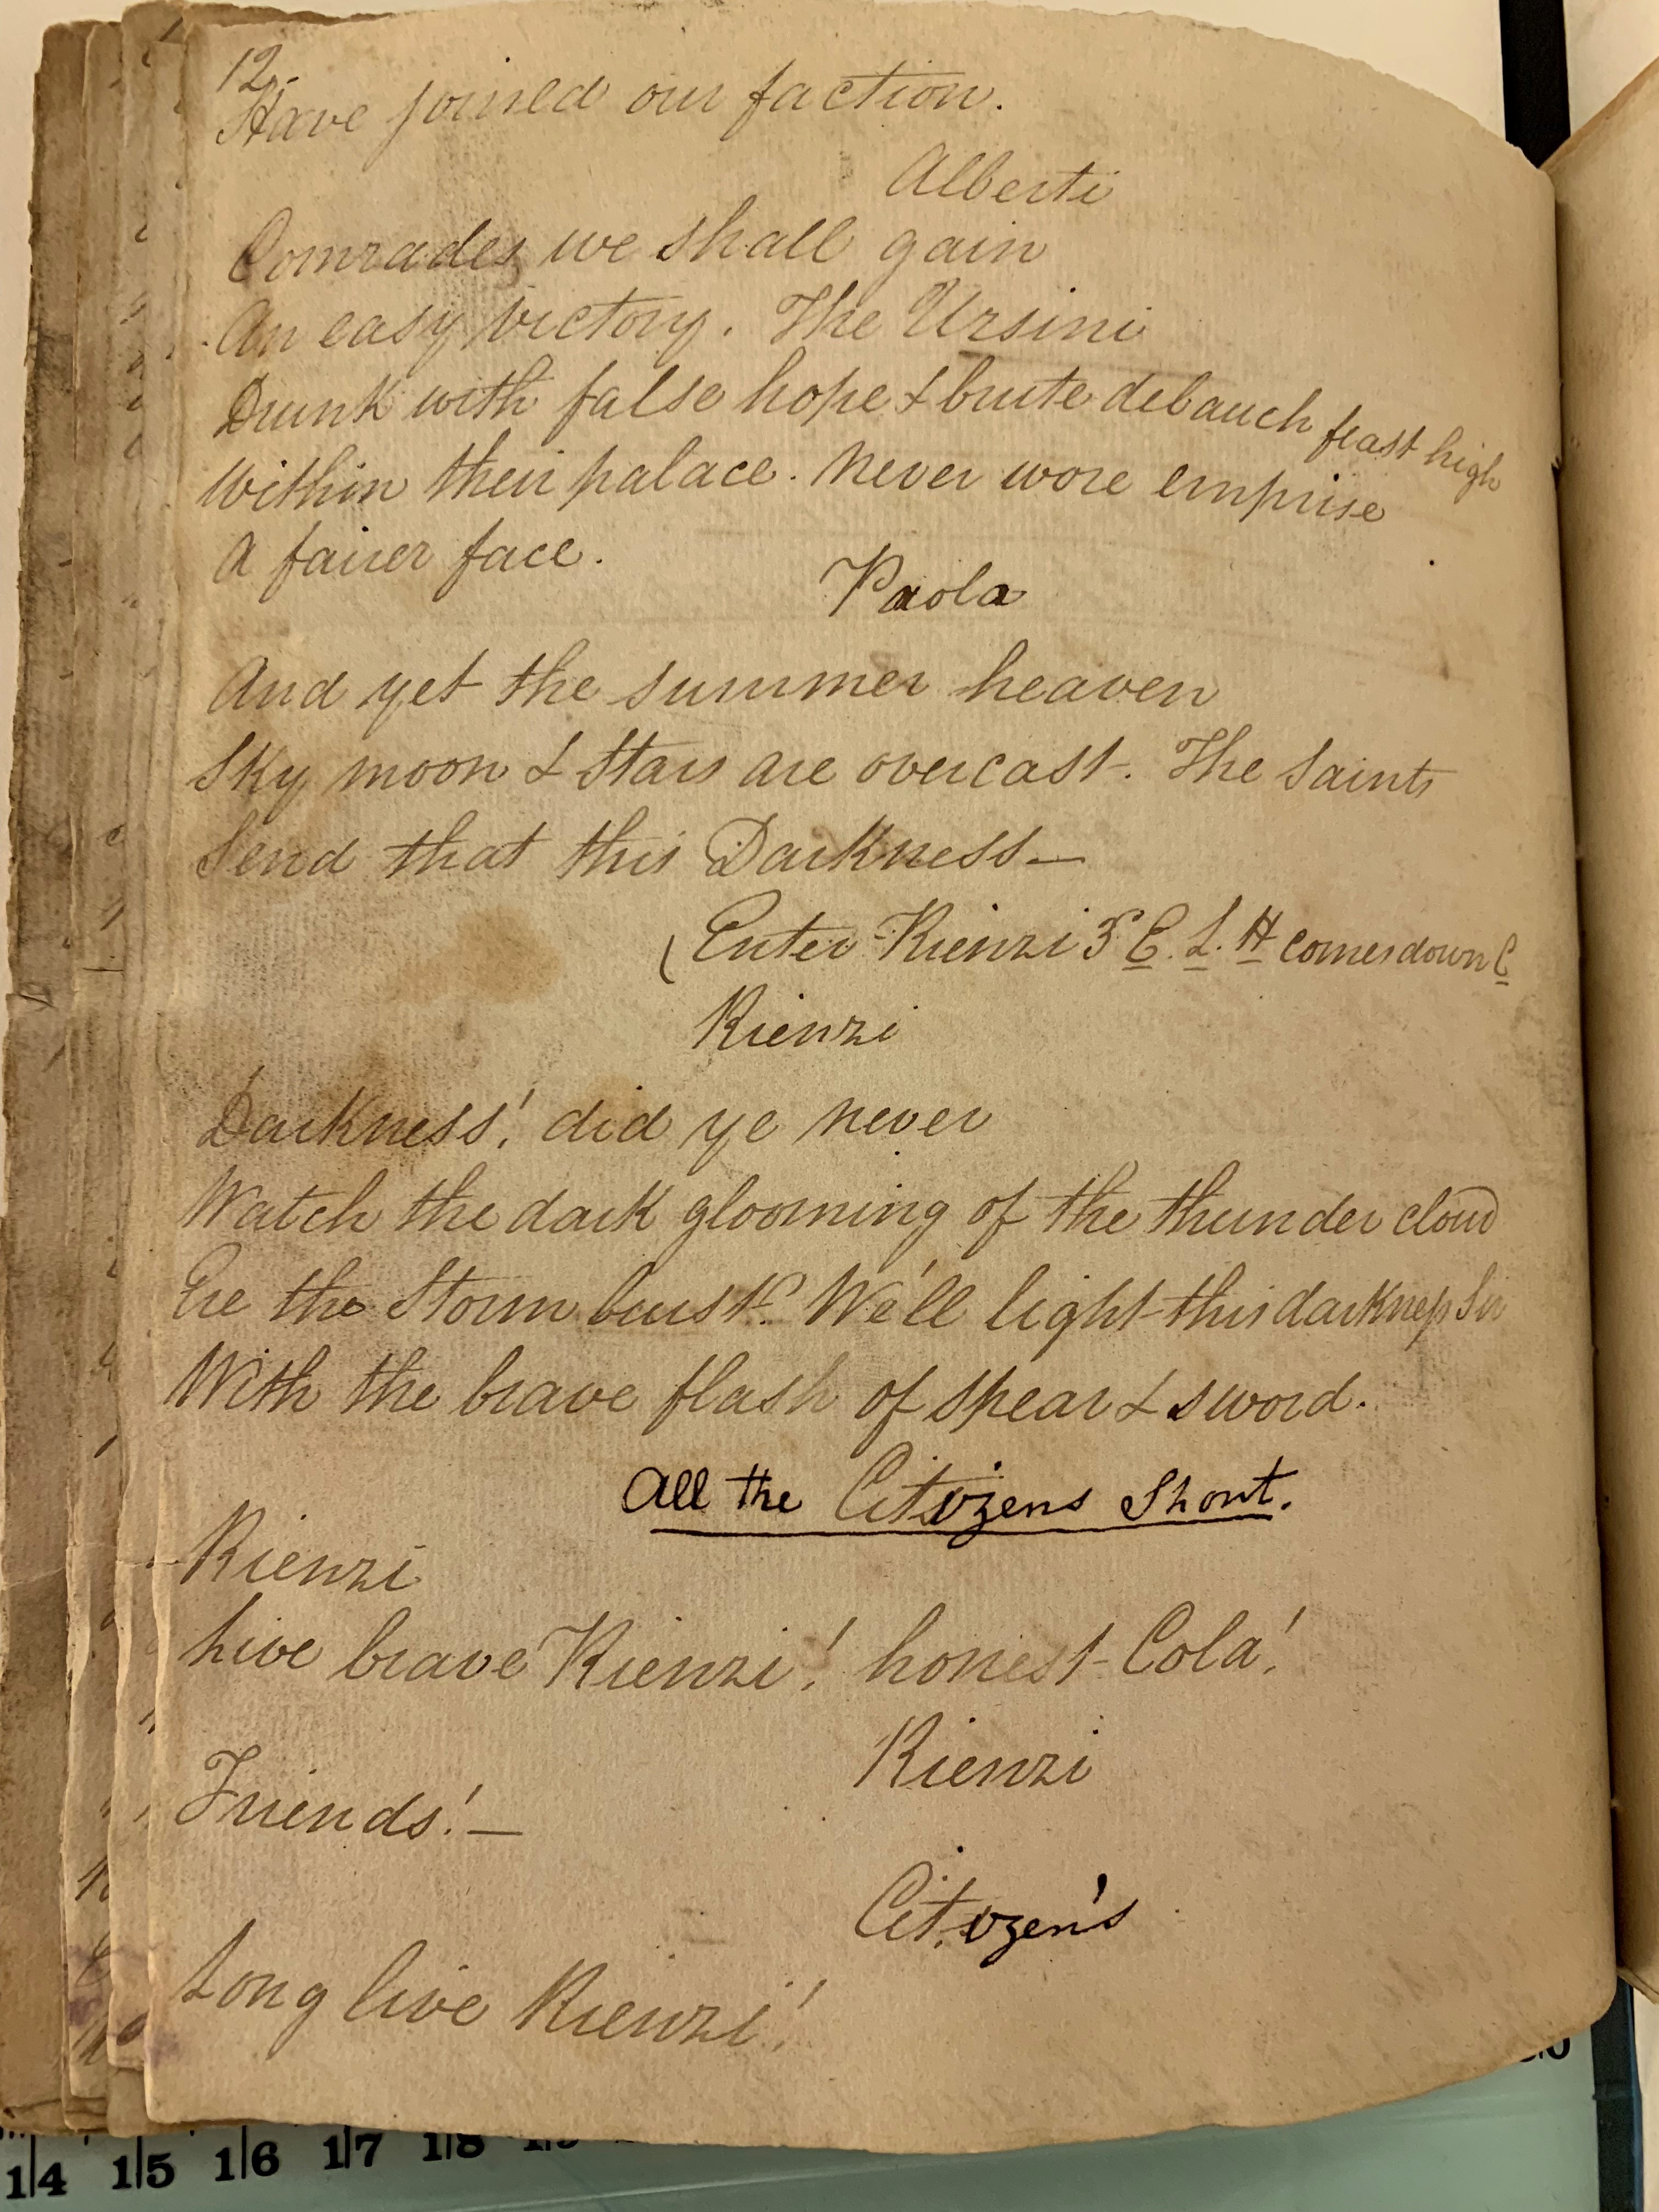 12.
Have joined our faction.
Alberti
Comrades we shall gain
An easy victory. The Ursini
Drunk with false hope & brute debauch feast high
Within their palace. Never wore emprise
A fairer face.
Paola
And yet the summer heaven
Sky moon & Stars are overcast. The Saints
Send that this Darkness—
(Enter Rienzi 3 E. L. H comes down C
Rienzi
Darkness! did ye never
Watch the dark glooming of the thunder cloud
Ere the Storm burst? We'll light this darkness Sir
With the brave flash of spear & sword.
All the Citizens Shout.
Rienzi
Live brave Rienzi! honest Cola!
Rienzi
Friends!—
Citizen's
Long live Rienzi!
14 15 16 17 18